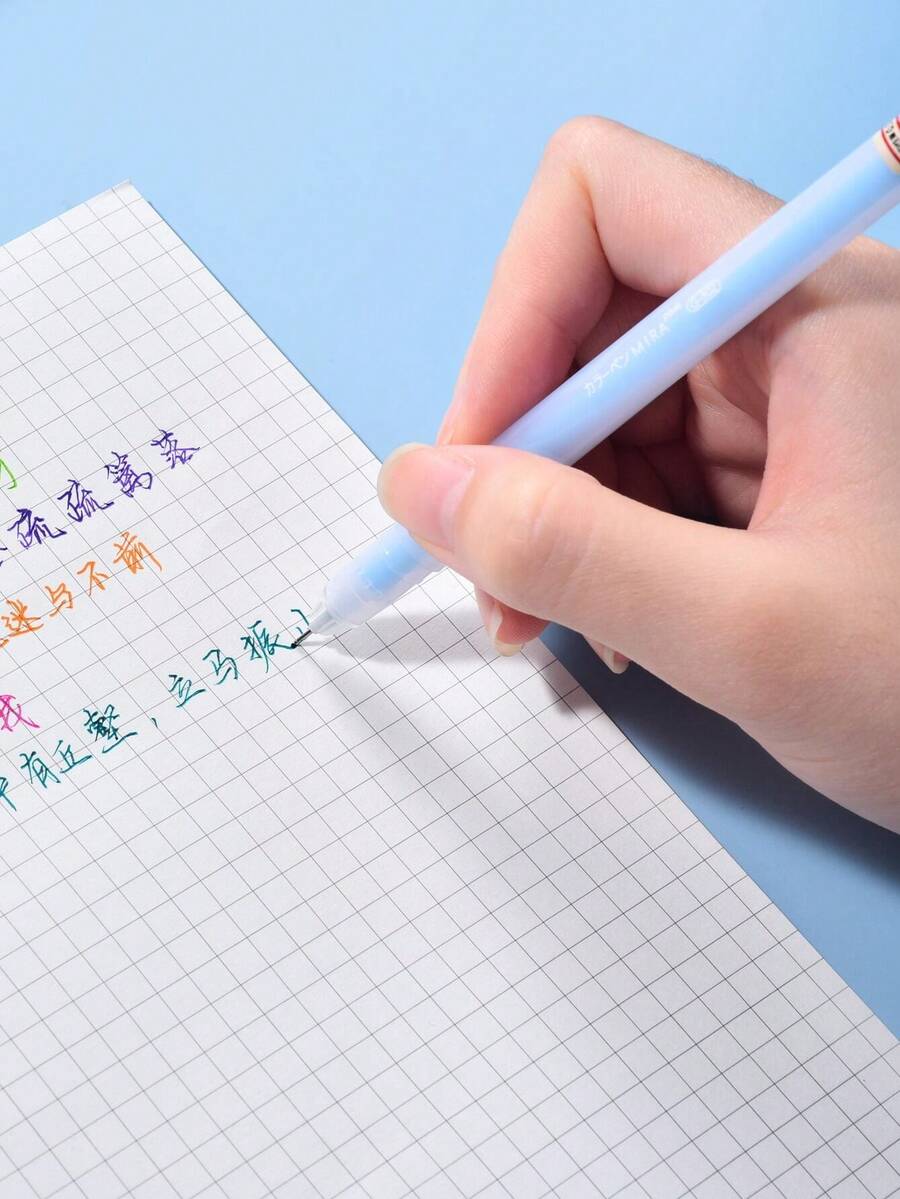 疏疏篱落
迷与不前
我
中有丘壑，立马振
カラーペンMIRA